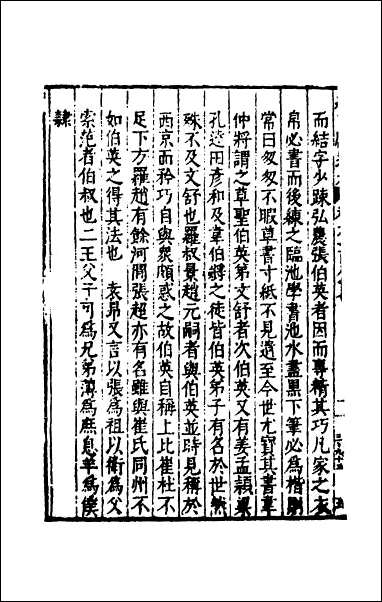 而結字少疎弘農張伯英者因而專精其巧凡家之衣
帛必書而後練之臨池學書池水盡黑下筆必為楷則
常曰匆匆不暇草書寸紙不見遺至今世尤寶其書韋
仲將謂之草聖伯英弟文舒者次伯英又有姜孟穎梁
孔逹田彥和及韋伯將之徒皆伯英弟子有名於世然
殊不及文舒也羅叔景趙元嗣者與伯英並時見稱於
西京而矜巧自與衆頗惑之故伯英自稱上比崔杜不
足下方羅趙有餘河間張超亦有名雖與崔氏同州不
如伯英之得其法也　袁昂又言以張為祖以衛為父
索范者伯叔也二王父子可為兄弟薄為庶息羊為僕
隸